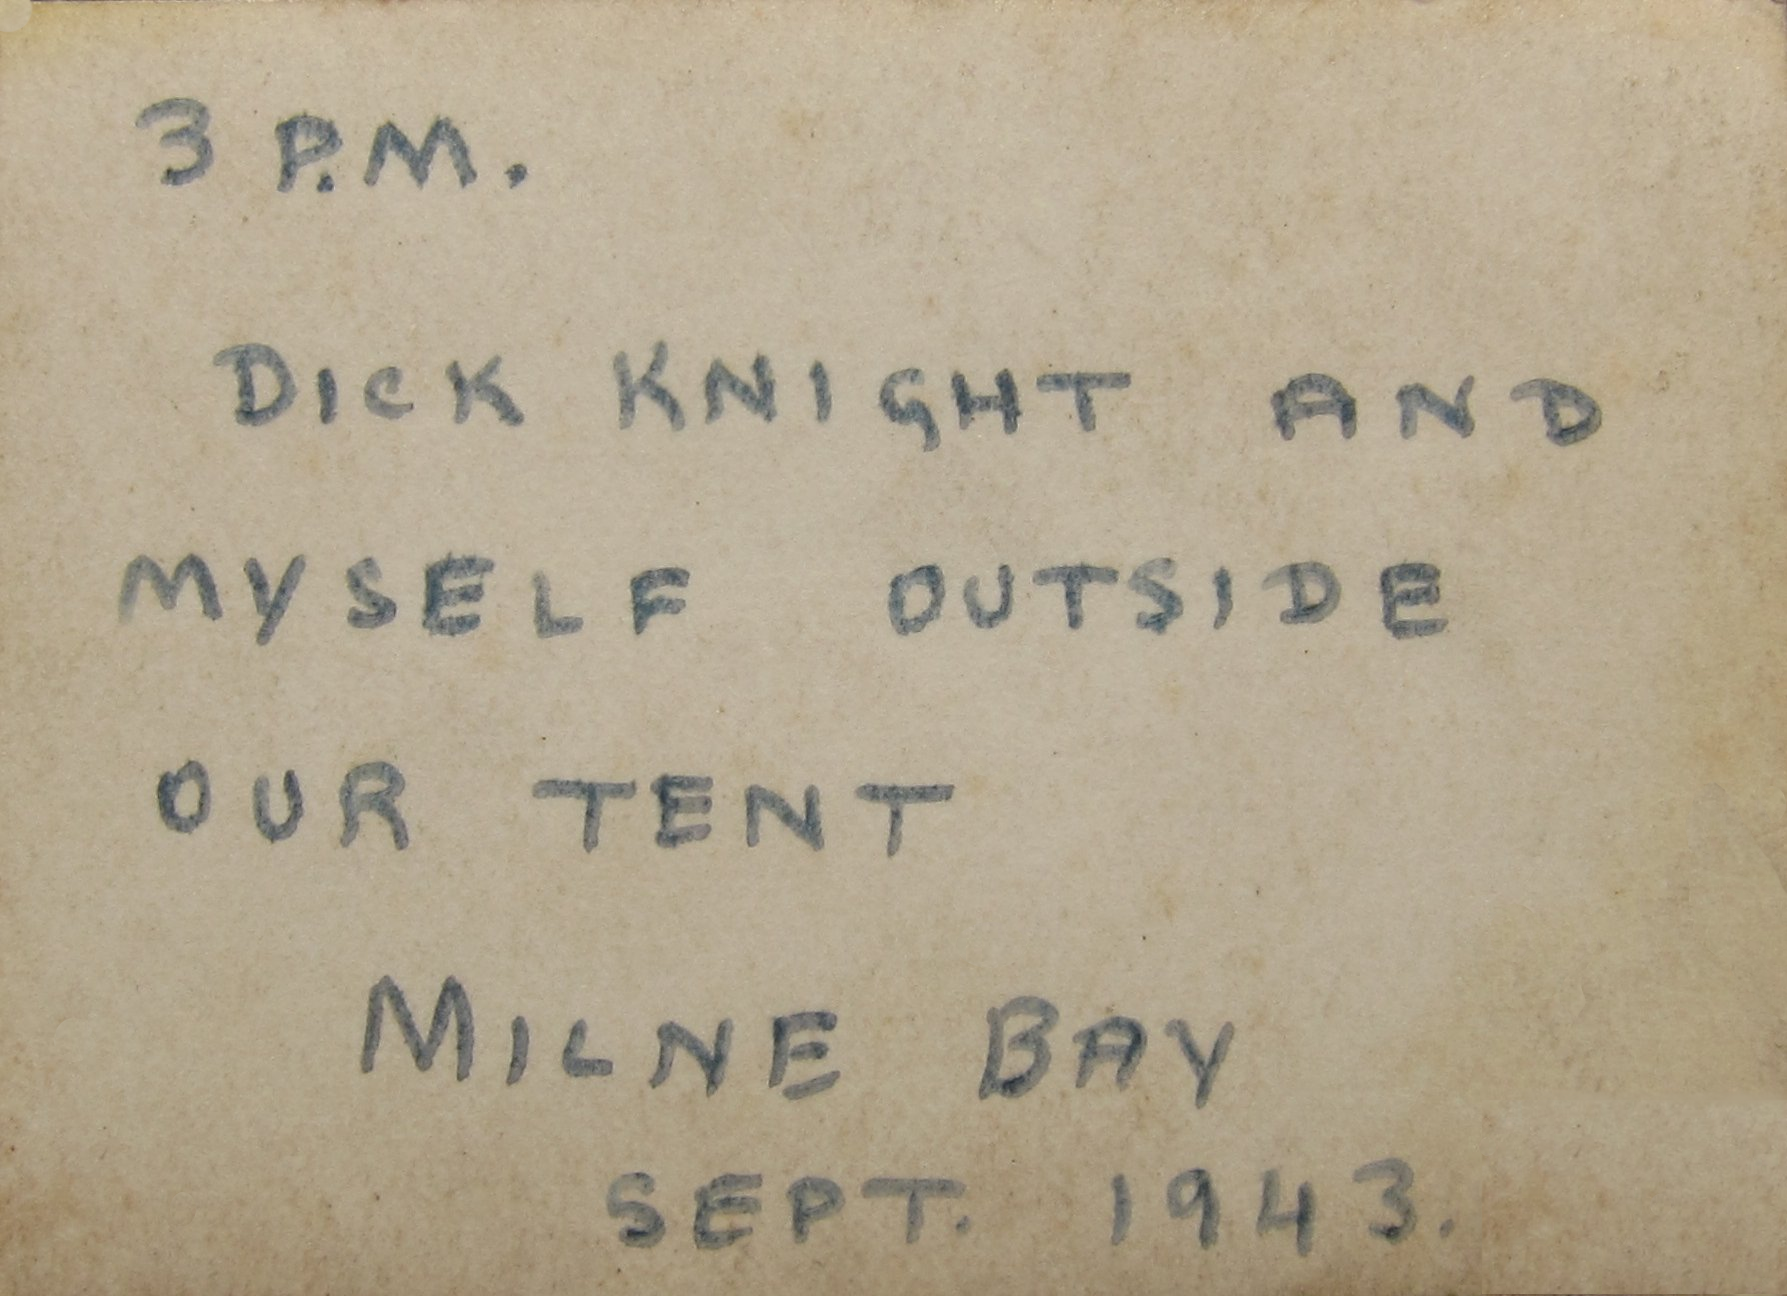 3 P.M.
DICK KNIGHT AND
MYSELF OUTSIDE
OUR TENT
MILNE BAY
SEPT. 1943.